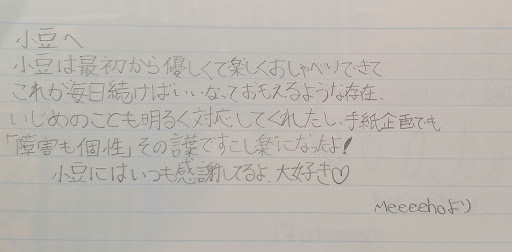 小豆へ
小豆は最初から優しくて楽しくおしゃべりできて
これが毎日続けばいいなっておもえるような存在、
いじめのことも明るく対応してくれたし、手紙企画でも
「障害も個性」その言葉ですこし楽になったよ!
小豆にはいつも感謝してるよ、大好き♡
Meeeehoより